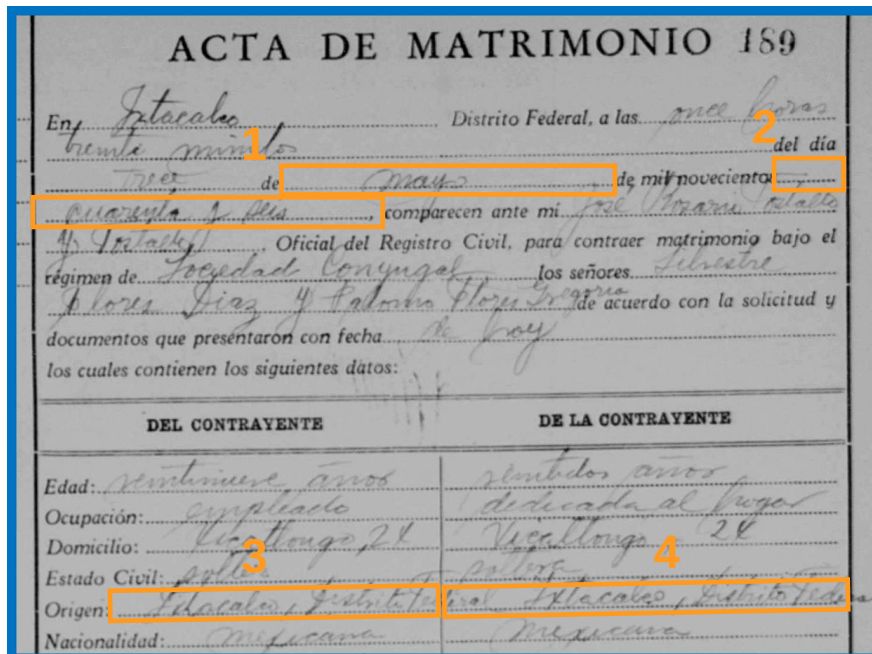 ACTA DE MATRIMONIO 189
En Ixtacalco Distrito Federal, a las once horas
1 2
treinta minutos del día
trece de mayo de mil novecientos
cuarenta y seis, comparecen ante mi José Rosario
Oficial del Registro Civil, para contraer matrimonio bajo el
régimen de Sociedad Conyugal los señores Silvestre
Flores Diaz y Palomo Flores Gregoria de acuerdo con la solicitud y
documentos que presentaron con fecha de hoy
los cuales contienen los siguientes datos:
DEL CONTRAYENTE DE LA CONTRAYENTE
Edad: veintinueve años ventidos años
Ocupación: empleado dedicada al hogar
Domicilio: 24 24
3 4
Estado Civil: soltero soltera
Origen: Ixtacalco, Distrito Federal Ixtacalco, Distrito Federal
Nacionalidad: mexicana mexicana